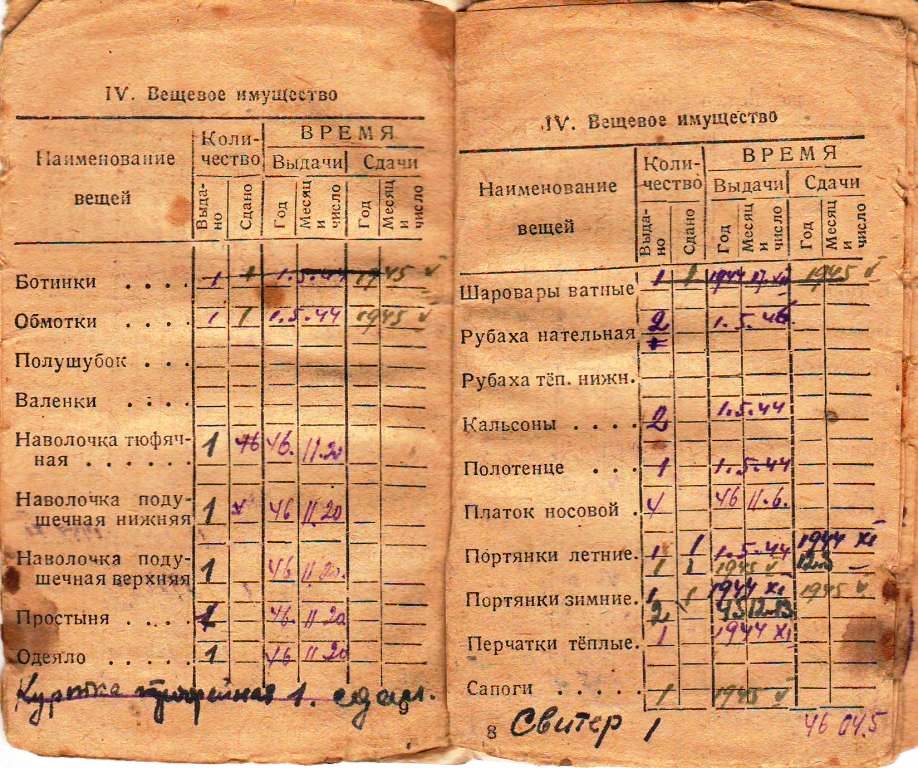 IV. Вещевое имущество
Наименование вещей
Коли-
чество
ВРЕМЯ
Выдачи
Сдачи
Выда-
но
Сдано
Год
Месяц
и
число
Год
Месяц
и
число
Ботинки . . . . 1 1 1.5.44 1945 V
Обмотки . . . . 1 1 1.5.44 1945 V
Полушубок . . .
Валенки . . . .
Наволочка тюфяч-
ная . . . . . . 1 46 46. 11.20
Наволочка поду-
шечная нижняя 1 46 11.20
Наволочка поду-
шечная верхняя 1 46 11.20.
Простыня . . . . 1 46. 11.20
Одеяло . . . . . 1 46 11.20
Куртка трофейная 1. сдал.
IV. Вещевое имущество
Наименование
вещей
Коли-
чество
ВРЕМЯ
Выдачи
Сдачи
Выда-
но
Сдано
Год
Месяц
и
число
Год
Месяц
и
число
Шаровары ватные 1 1 1944 1945 V
Рубаха нательная 2 1.5.46
Рубаха тёп. нижн.
Кальсоны . . . . 2 1.5.44
Полотенце . . . 1 1.5.44
Платок носовой . 46 11.6.
Портянки летние. 1 1 1.5.44 1944 XI
1 1 1945 V
Портянки зимние. 1 1 1944 XI 1945 V
2 45 12.13
Перчатки тёплые. 1 1944 XI
Сапоги . . . . . 1 1945 V
8 Свитер 1 46 04.5